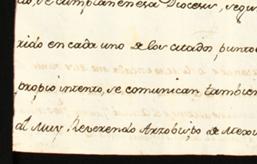 se cumplan en esa Diocesis, segu
rido en cada uno de los citados puntos
propio intento, se comunican tambien
al Muy Reverendo Arzobispo de Mexico